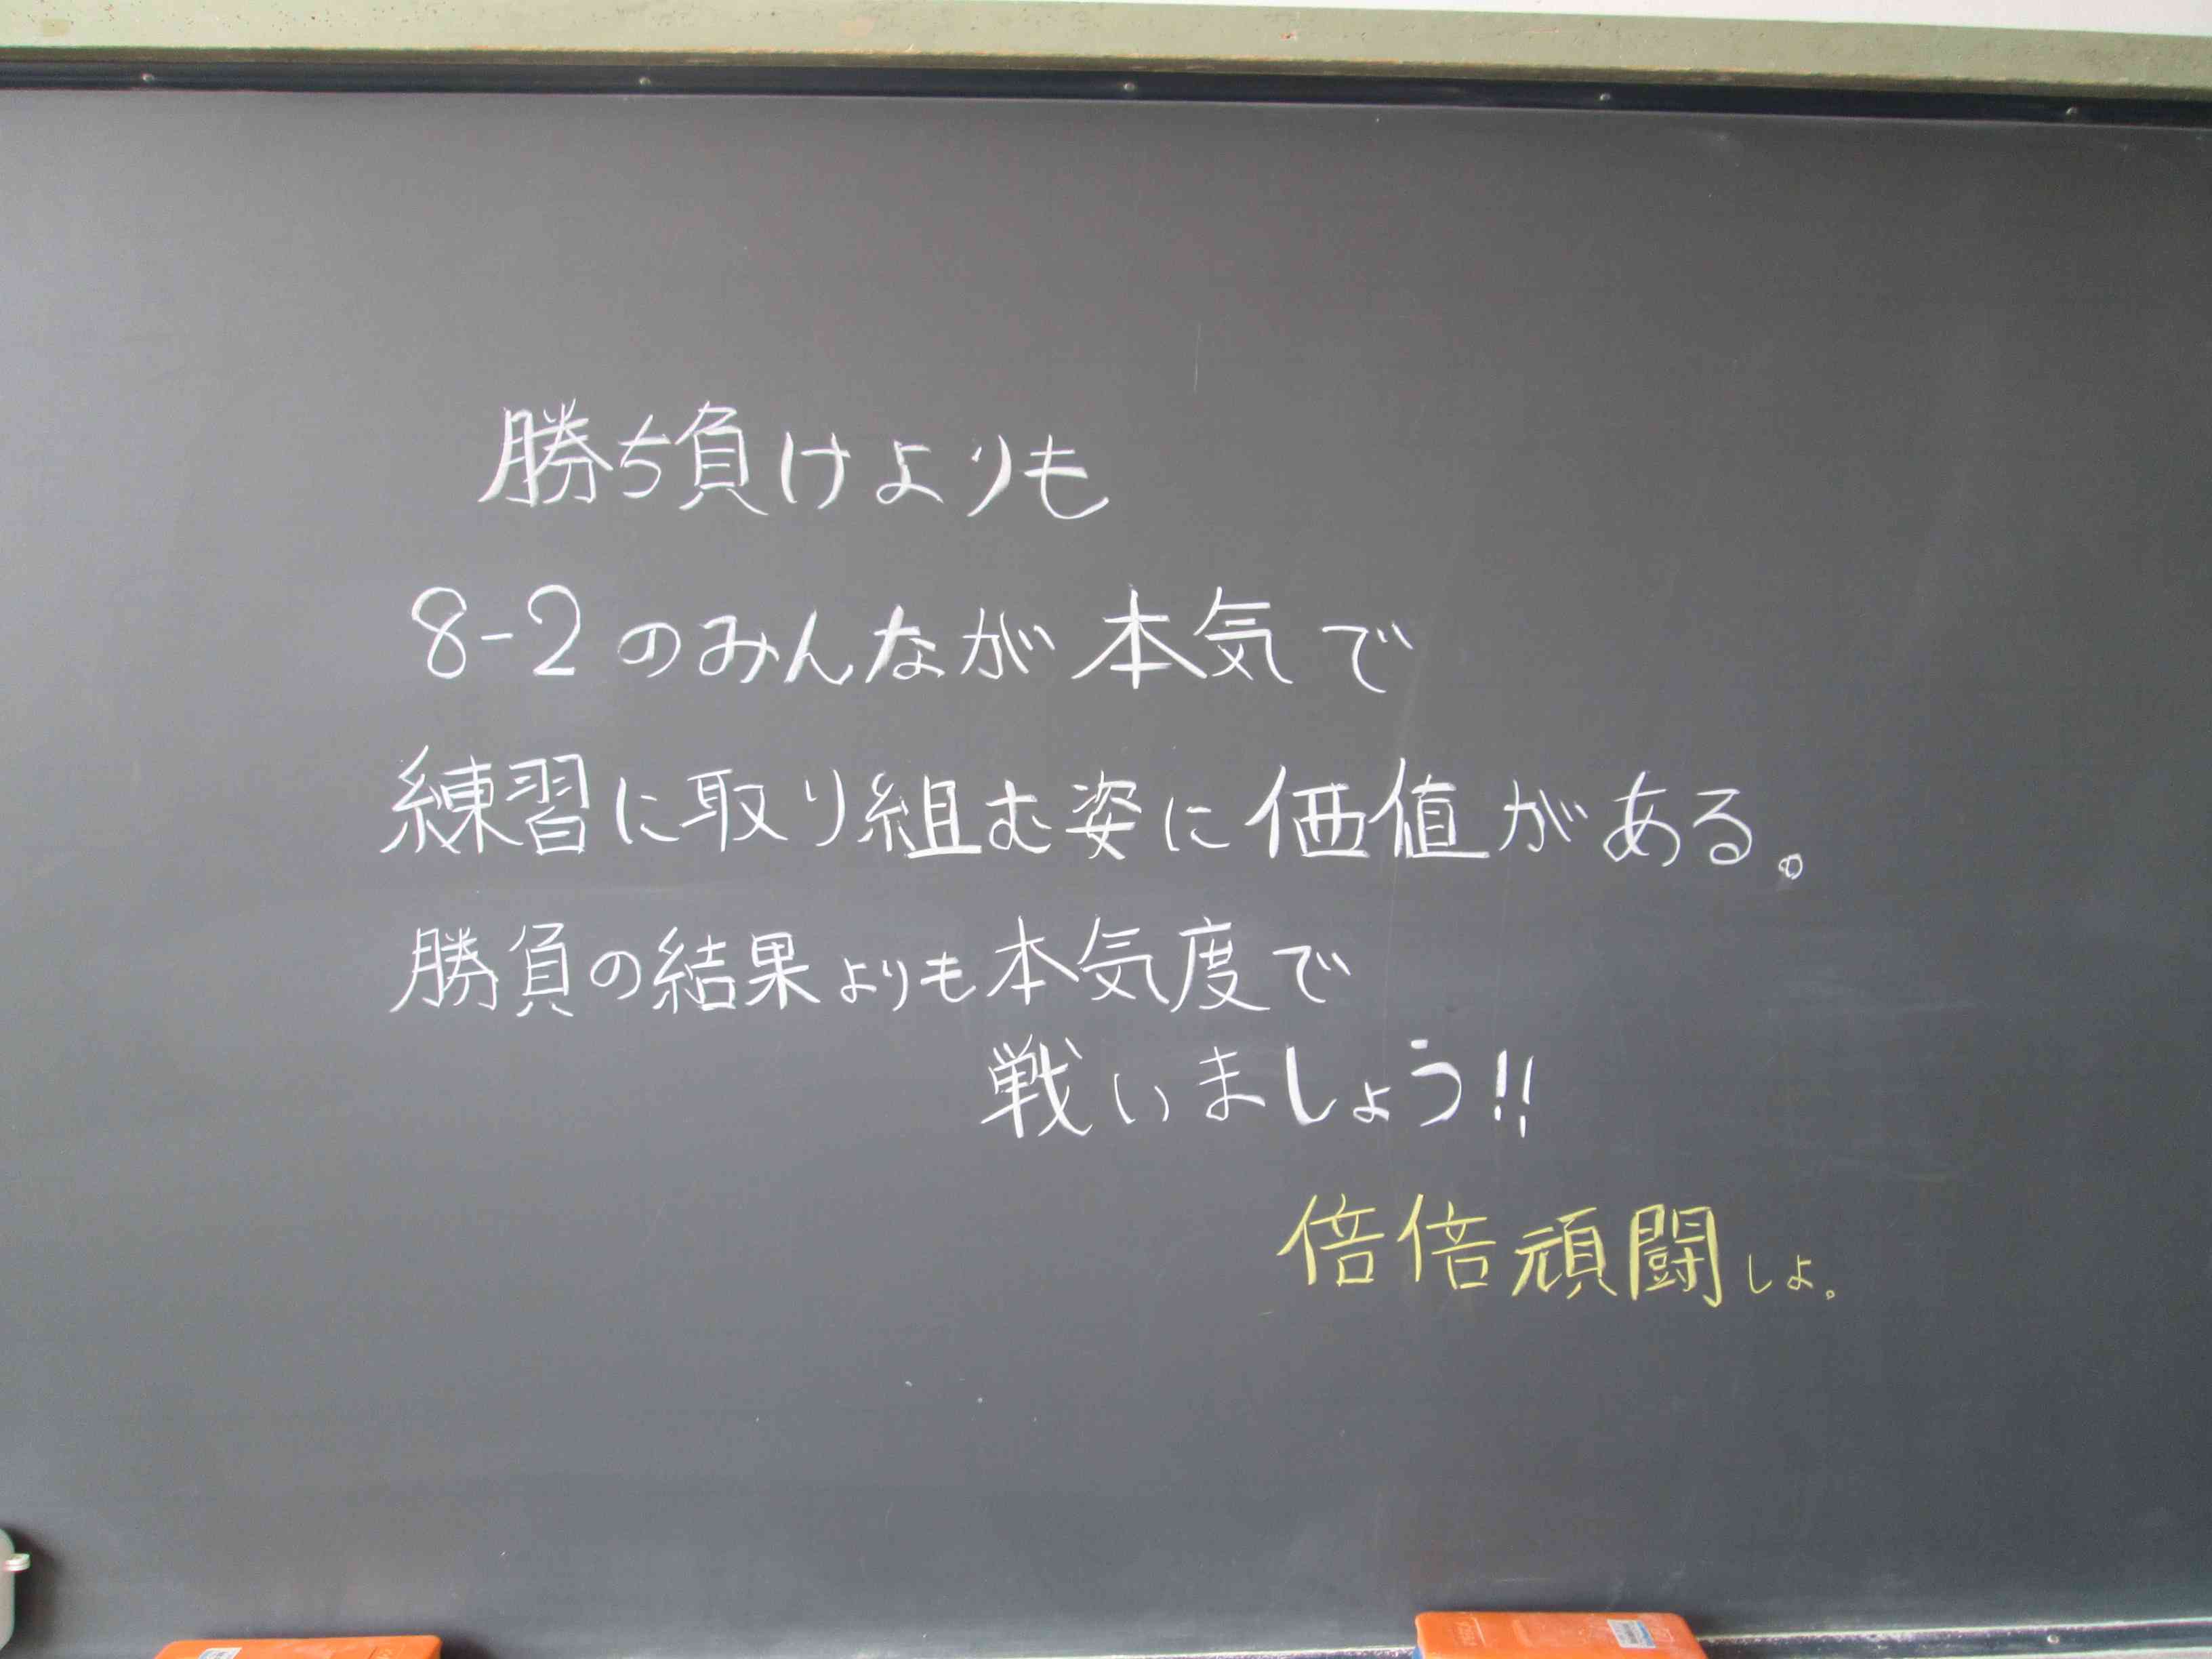 勝ち負けよりも
8-2のみんなが本気で
練習に取り組む姿に価値がある。
勝負の結果よりも本気度で
戦いましょう!!
倍倍頑闘しょ。